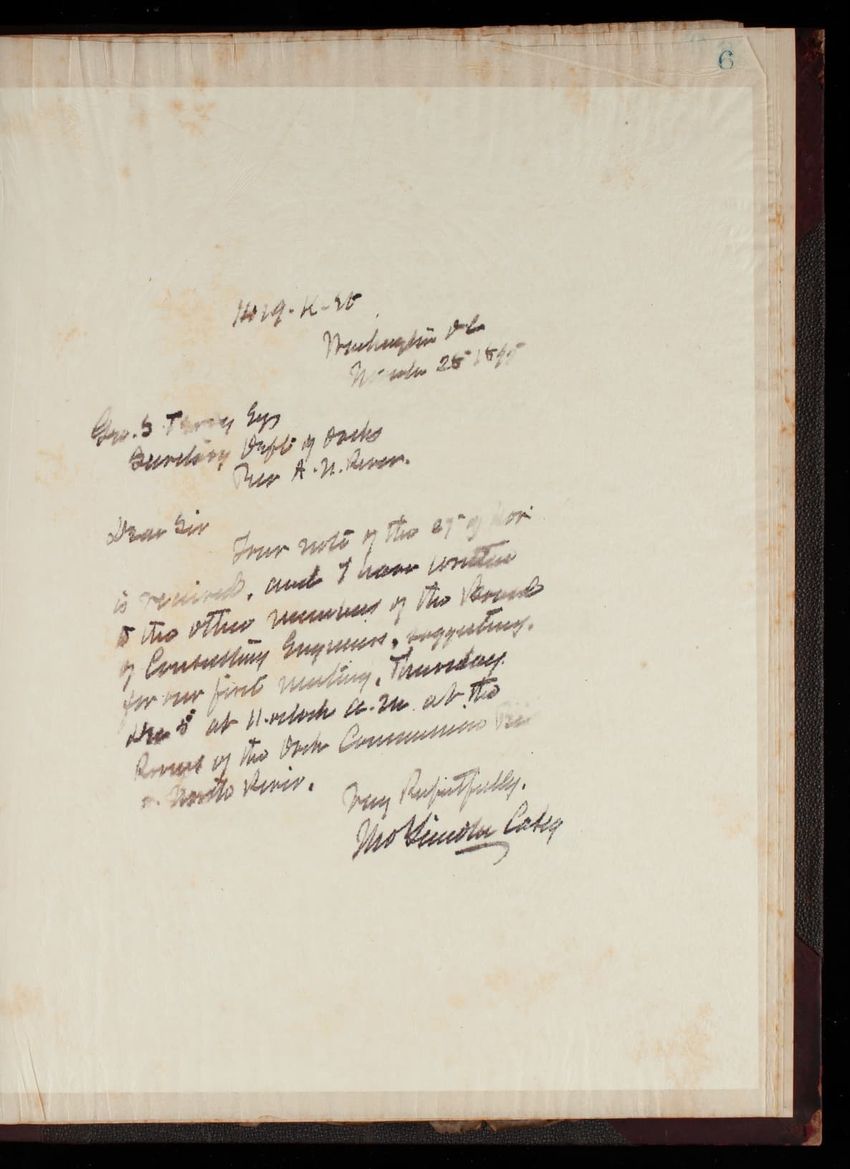 6
Washington D.C.
28 1895
Geo. S. Terry Esq
Secretary Dept of Docks
Pier A. N. River.
Dear Sir
Your note of the 27" of Nov
is received, and I have written
to the other members of the Board
of Consulting Engineers, suggesting,
for our first meeting, Thursday
Dec 5" at 11 oclock a.m. at the
Rooms of the Dock Commission Pier
North River.
Very Respectfully.
Thos Lincoln Casey